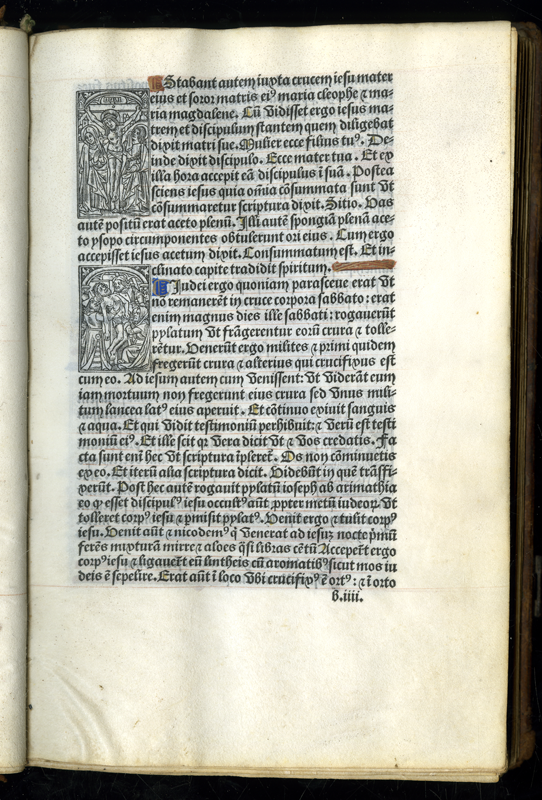 Stabant autem iuxta crucem iesu mater
eius et soror matris ei⁹ maria cleophe ⁊ ma-
ria magdalene. Cū vidisset ergo iesus ma-
trem et discipulum stantem quem diligebat
dixit matri sue. Mulier ecce filius tu⁹. De-
inde dixit discipulo. Ecce mater tua. Et ex
illa hora accepit eā discipulus ī suā. Postea
sciens iesus quia oīa cōsummata sunt vt
cōsummaretur scriptura dixit. Sitio. Vas
autē positū erat aceto plenū. Illi autē spongiā plenā ace-
to ysopo circumponentes obtulerunt ori eius. Cum ergo
accepisset iesus acetum dixit. Consummatum est. Et in-
clinato capite tradidit spiritum.
Iudei ergo quoniam parasceue erat vt
nō remanerēt in cruce corpora sabbato: erat
enim magnus dies ille sabbati: rogauerūt
pylatum vt frāgerentur eorū crura ⁊ tolle-
rētur. Venerūt ergo milites ⁊ primi quidem
fregerūt crura ⁊ alterius qui crucifixus est
cum eo. Ad iesum autem cum venissent: vt viderāt eum
iam mortuum non fregerunt eius crura sed vnus mili-
tum lancea lat⁹ eius aperuit. Et cōtinuo exiuit sanguis
⁊ aqua. Et qui vidit testimoniū perhibuit: ⁊ verū est testi
moniū ei⁹. Et ille scit qꝛ vera dicit vt ⁊ vos credatis. Fa
cta sunt enī hec vt scriptura īpleret᷑. Os non cōminuetis
ex eo. Et iterū alia scriptura dicit. Videbūt in quē trāsfi-
xerūt. Post hec autē rogauit pylatū ioseph ab arimathia
eo ꝙ esset discipul⁹ iesu occult⁹ aūt ꝓpter metū iudeoꝝ. vt
tolleret corp⁹ iesu ⁊ ꝑmisit pylat⁹. Venit ergo ⁊ tulit corp⁹
iesu. Venit aūt ⁊ nicodem⁹ q̄ venerat ad iesuꝫ nocte pͥmū
ferēs mixturā mirre ⁊ aloes q̄si libras cētū Acceperūt ergo
corp⁹ iesu ⁊ ligauerūt eū lintheis cū aromatib⁹ sicut mos iu
deis ē sepelire. Erat aūt ī loco vbi crucifix⁹ ē ort⁹: ⁊ ī orto
b.iiii.